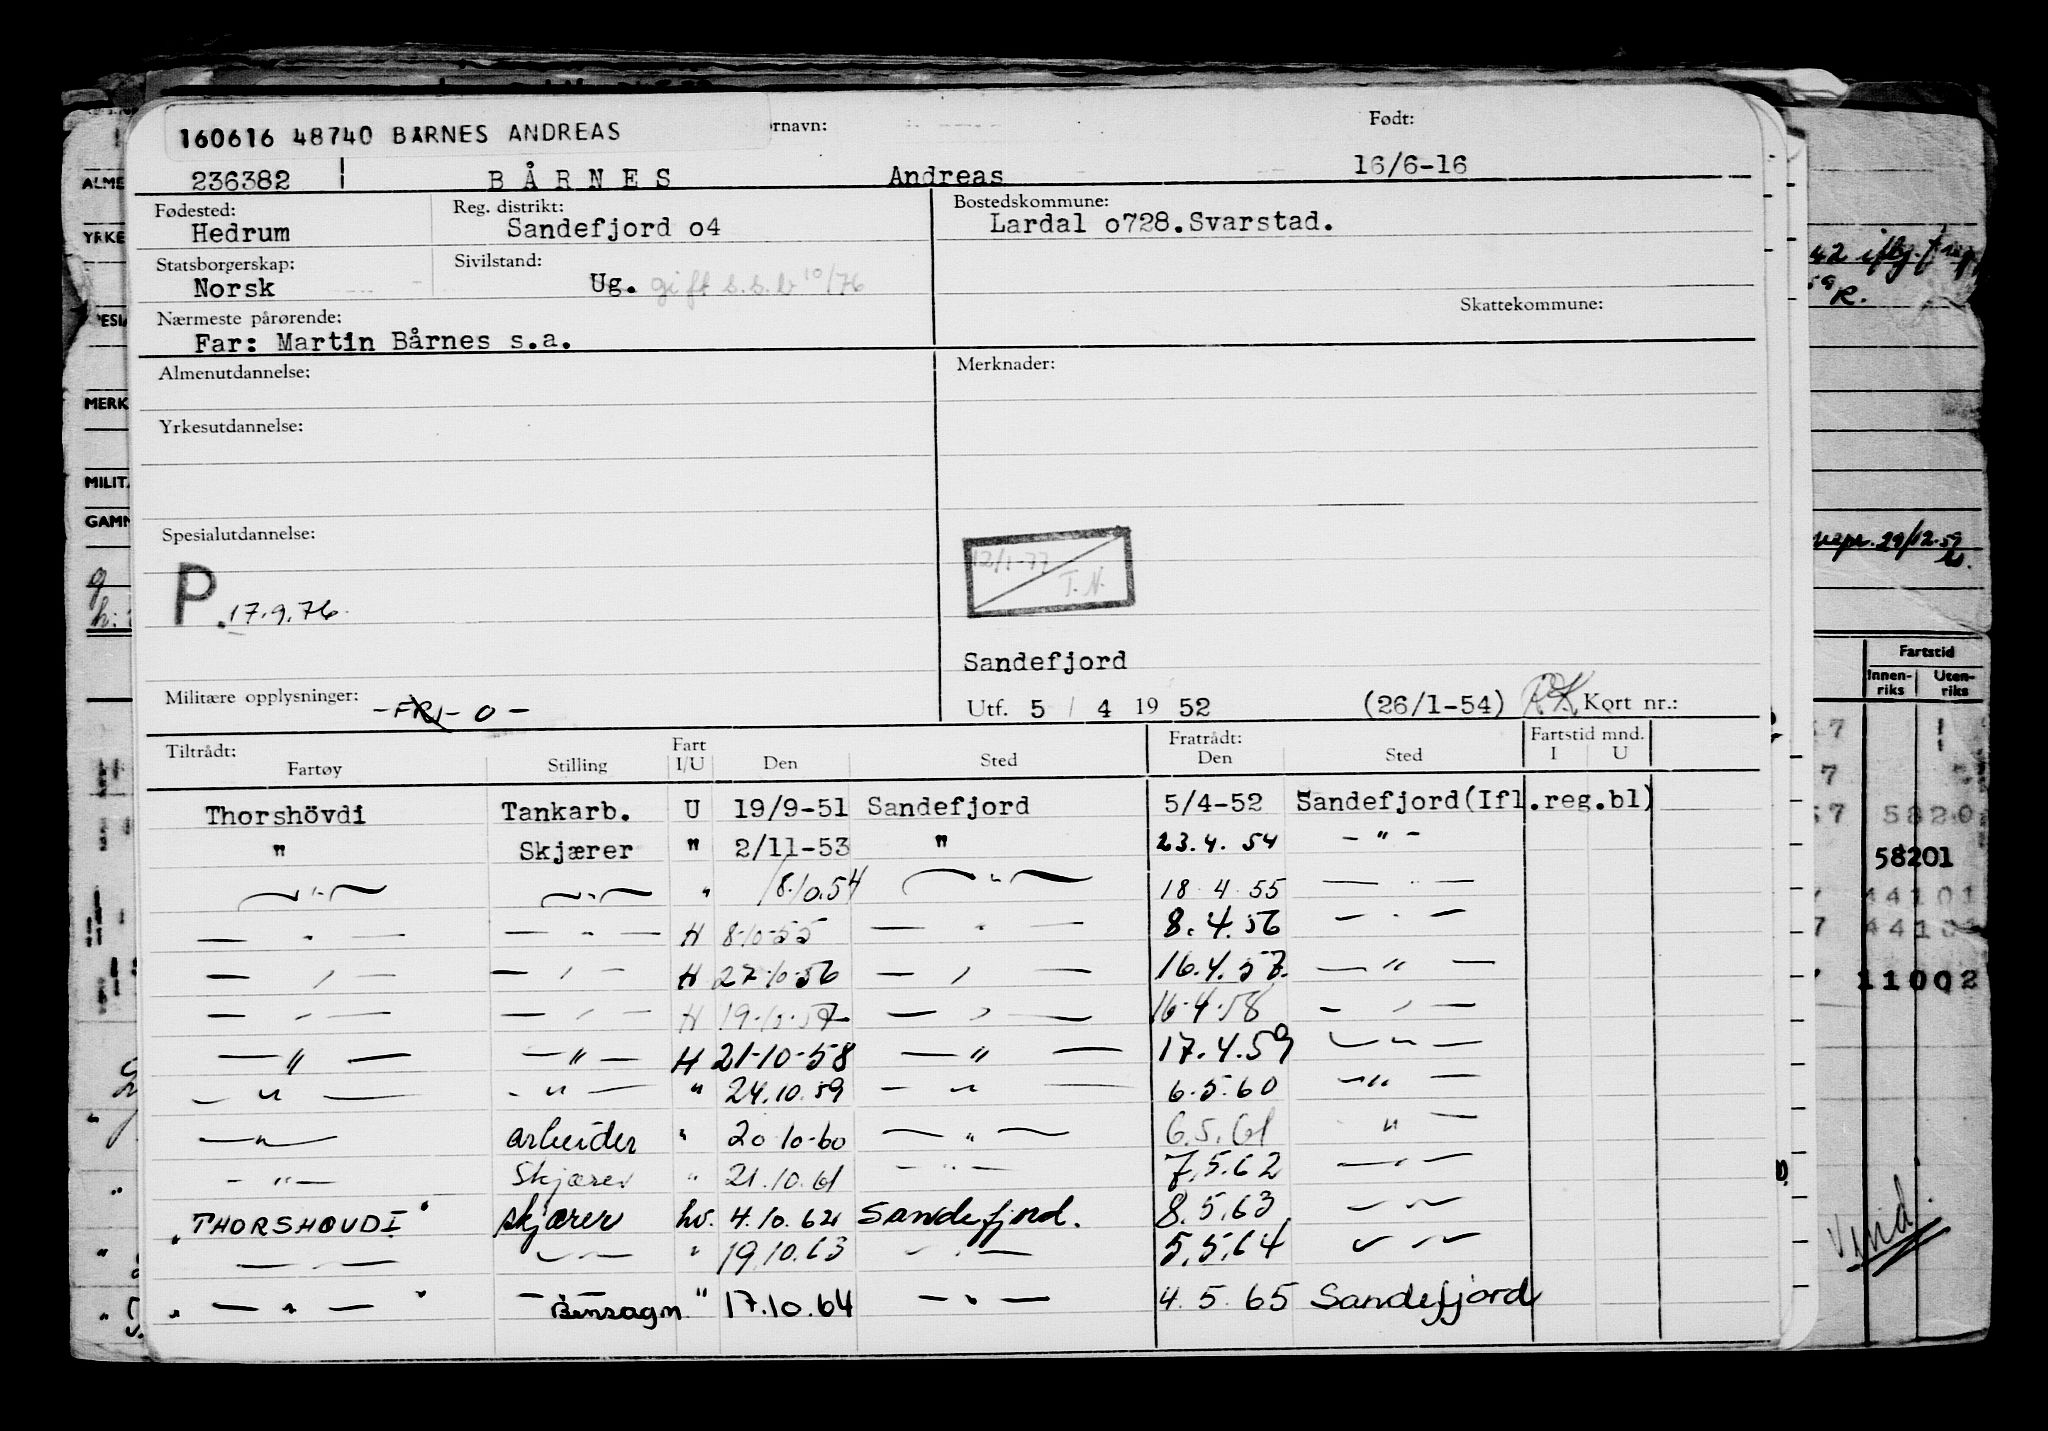 160616 48740 BARNES ANDREAS
rnavn: Født:
236382 BÅRNES Andreas 16/6-16
Fødested: Reg. distrikt: Bostedskommune:
Hedrum Sandefjord o4 Lardal o728.Svarstad.
Statsborgerskap: Sivilstand:
Norsk Ug. gift s.s.b 10/76
Nærmeste pårørende: Skattekommune:
Far: Martin Bårnes s.a.
Almenutdannelse: Merknader:
Yrkesutdannelse:
Spesialutdannelse:
12/1-77
T.N.
P. 17.9.76
Sandefjord
Militære opplysninger: -FRI- 0 - Utf. 5 / 4 19 52 (26/1-54) Kort nr.:
Tiltrådt: Fart Fratrådt: Fartstid mnd.
Fartøy Stilling I/U Den Sted Den Sted I U
Thorshövdi Tankarb. U 19/9-51 Sandefjord 5/4-52 Sandefjord(Ifl.reg.bl)
" Skjærer " 2/11-53 " 23.4.54 - " -
- " - - " - " 18.10.54 - " - 18.4.55 - " -
- " - - " - H 8-10-55 - " - 8.4.56 - " -
- " - - " - H 27-10-56 - " - 16.4.57. - " -
- " - - " - H 19-10-57 - " - 16-4-58 - " -
- " - - " - H 21-10-58 - " - 17.4.59 - " -
- " - - " - " 24.10.59 - " - 6.5.60 - " -
- " - arbeider " 20 10-60 - " - 6.5.61 " -
- " - Skjærer " 21.10.61 - " - 7.5.62 - " -
"THORSHØVDI" skjærer hv. 4.10.62 Sandefjord. 8.5.63 - " -
- " - - " - " 19.10.63 - " - 5.5.64 - " -
" - " - " Bensagm " 17.10.64 - " - 4.5.65 Sandefjord
ALME
YRKE
PESIA
MERK
MILITÆ
GAMM
g
h:
42
R.
29/12.59
Fartstid
Innen-
riks
Uten-
riks
7
7
57 5820
58201
44101
7 44101
11002
Vend